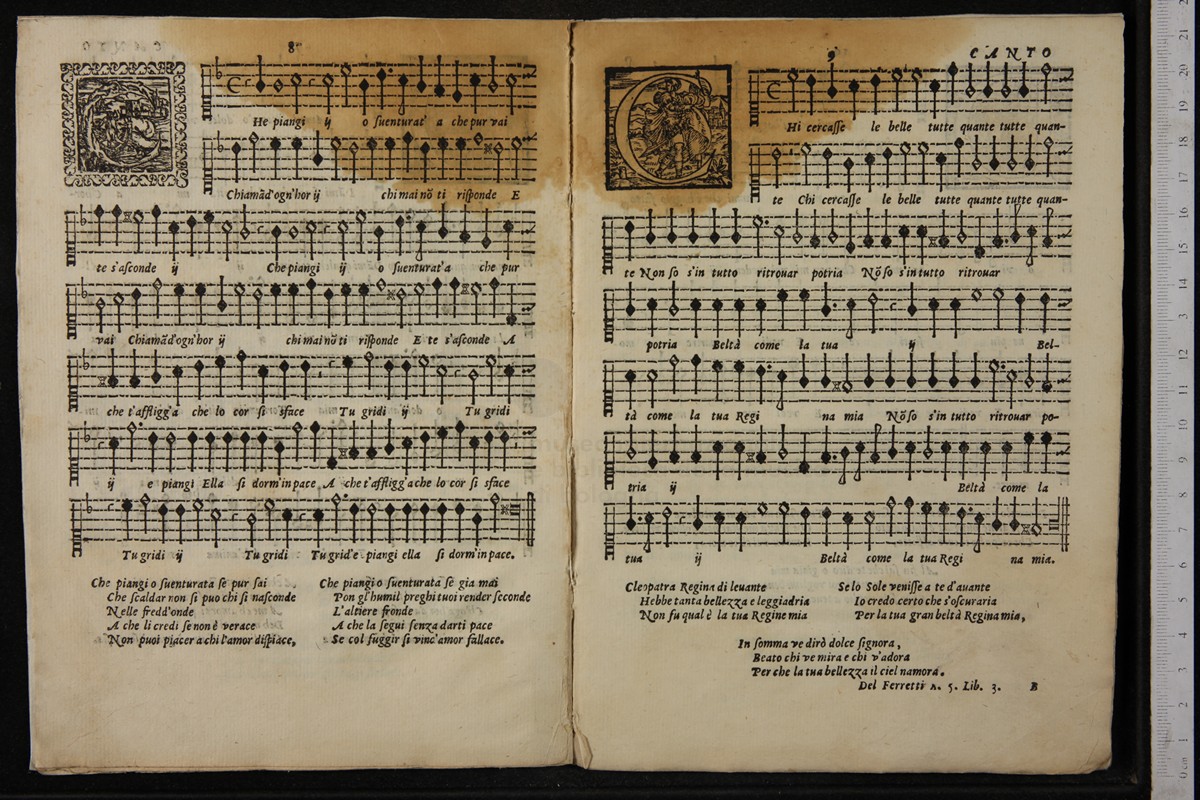 8
C He piangi ij o suenturat' a che pur vai
Chiamãd'ogn'hor ij chi mai nõ ti risponde E
te s'asconde ij Che piangi ij o suenturat'a che pur
vai Chiamãd'ogn'hor ij chi mai nõ ti risponde E te s'asconde A
che t'affligg'a che lo cor si sface Tu gridi ij o Tu gridi
ij e piangi Ella si dorm'in pace A che t'affligg'a che lo cor si sface
Tu gridi ij Tu gridi Tu grid'e piangi ella si dorm'in pace.
Che piangi o suenturata se pur sai
Che scaldar non si puo chi si nasconde
Nelle fredd'onde
A che li credi se non è verace
Non puoi piacer a chi l'amor dispiace.
Che piangi o suenturata se gia mai
Pon gl'humil preghi tuoi render seconde
L'altiere fronde
A che la segui senza darti pace
Se col fuggir si vinc'amor fallace.
9 CANTO
C Hi cercasse le belle tutte quante tutte quan-
te Chi cercasse le belle tutte quante tutte quan-
te Non so s'in tutto ritrouar potria Nõ so s'in tutto ritrouar
potria Beltà come la tua ij Bel-
tà come la tua Regi na mia Nõ so s'in tutto ritrouar po-
tria ij Beltà come la
tua ij Beltà come la tua Regi na mia.
Cleopatra Regina di leuante
Hebbe tanta bellezza e leggiadria
Non fu qual è la tua Regine mia
Se lo Sole venisse a te d'auante
Io credo certo che s'oscuraria
Per la tua gran beltà Regina mia,
In somma ve dirò dolce signora,
Beato chi ve mira e chi v'adora
Per che la tua bellezza il ciel namora.
Del Ferretti A. 5. Lib. 3. B